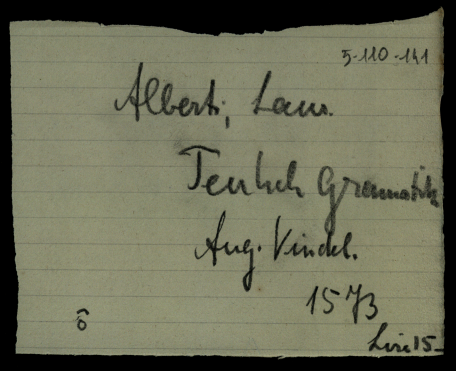 5-110-141
Alberti, Laur.
Teutsch Gramatik
Aug. Vindel.
1573
ô
Lire 15-